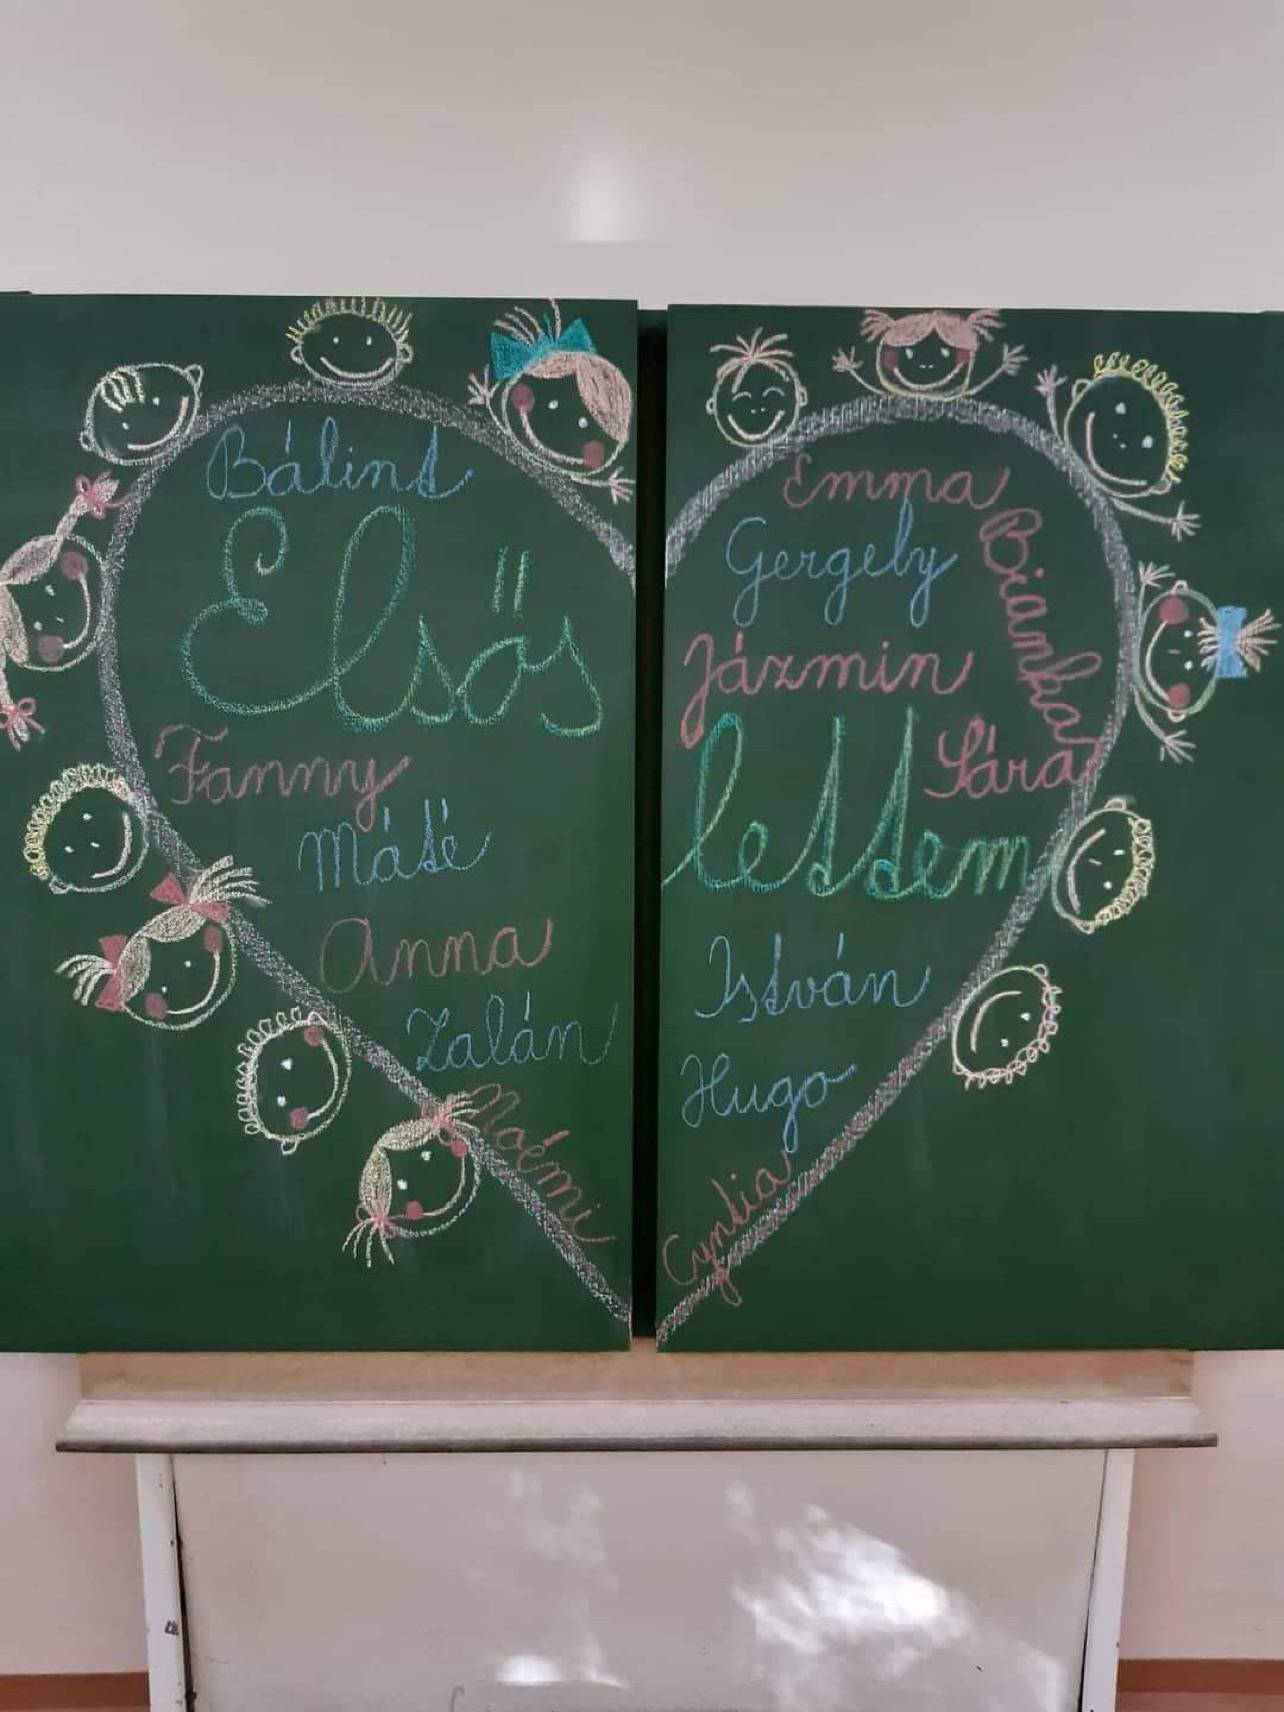 Bálint
Elsős
Fanny
Máté
Anna
Zalán
Noémi
Emma
Gergely
Bianka
Jázmin
Sára
lettem
István
Hugo
Cyntia